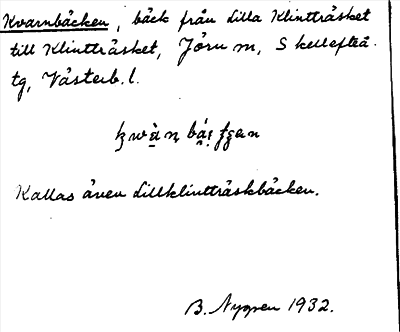 Kvarnbäcken, bäck från Lilla Klintträsket
till Klintträsket, Jörn m, Skellefteå
tg, Västerb. l.
Kallas även Lillklintträskbäcken.
B. Nygren 1932.